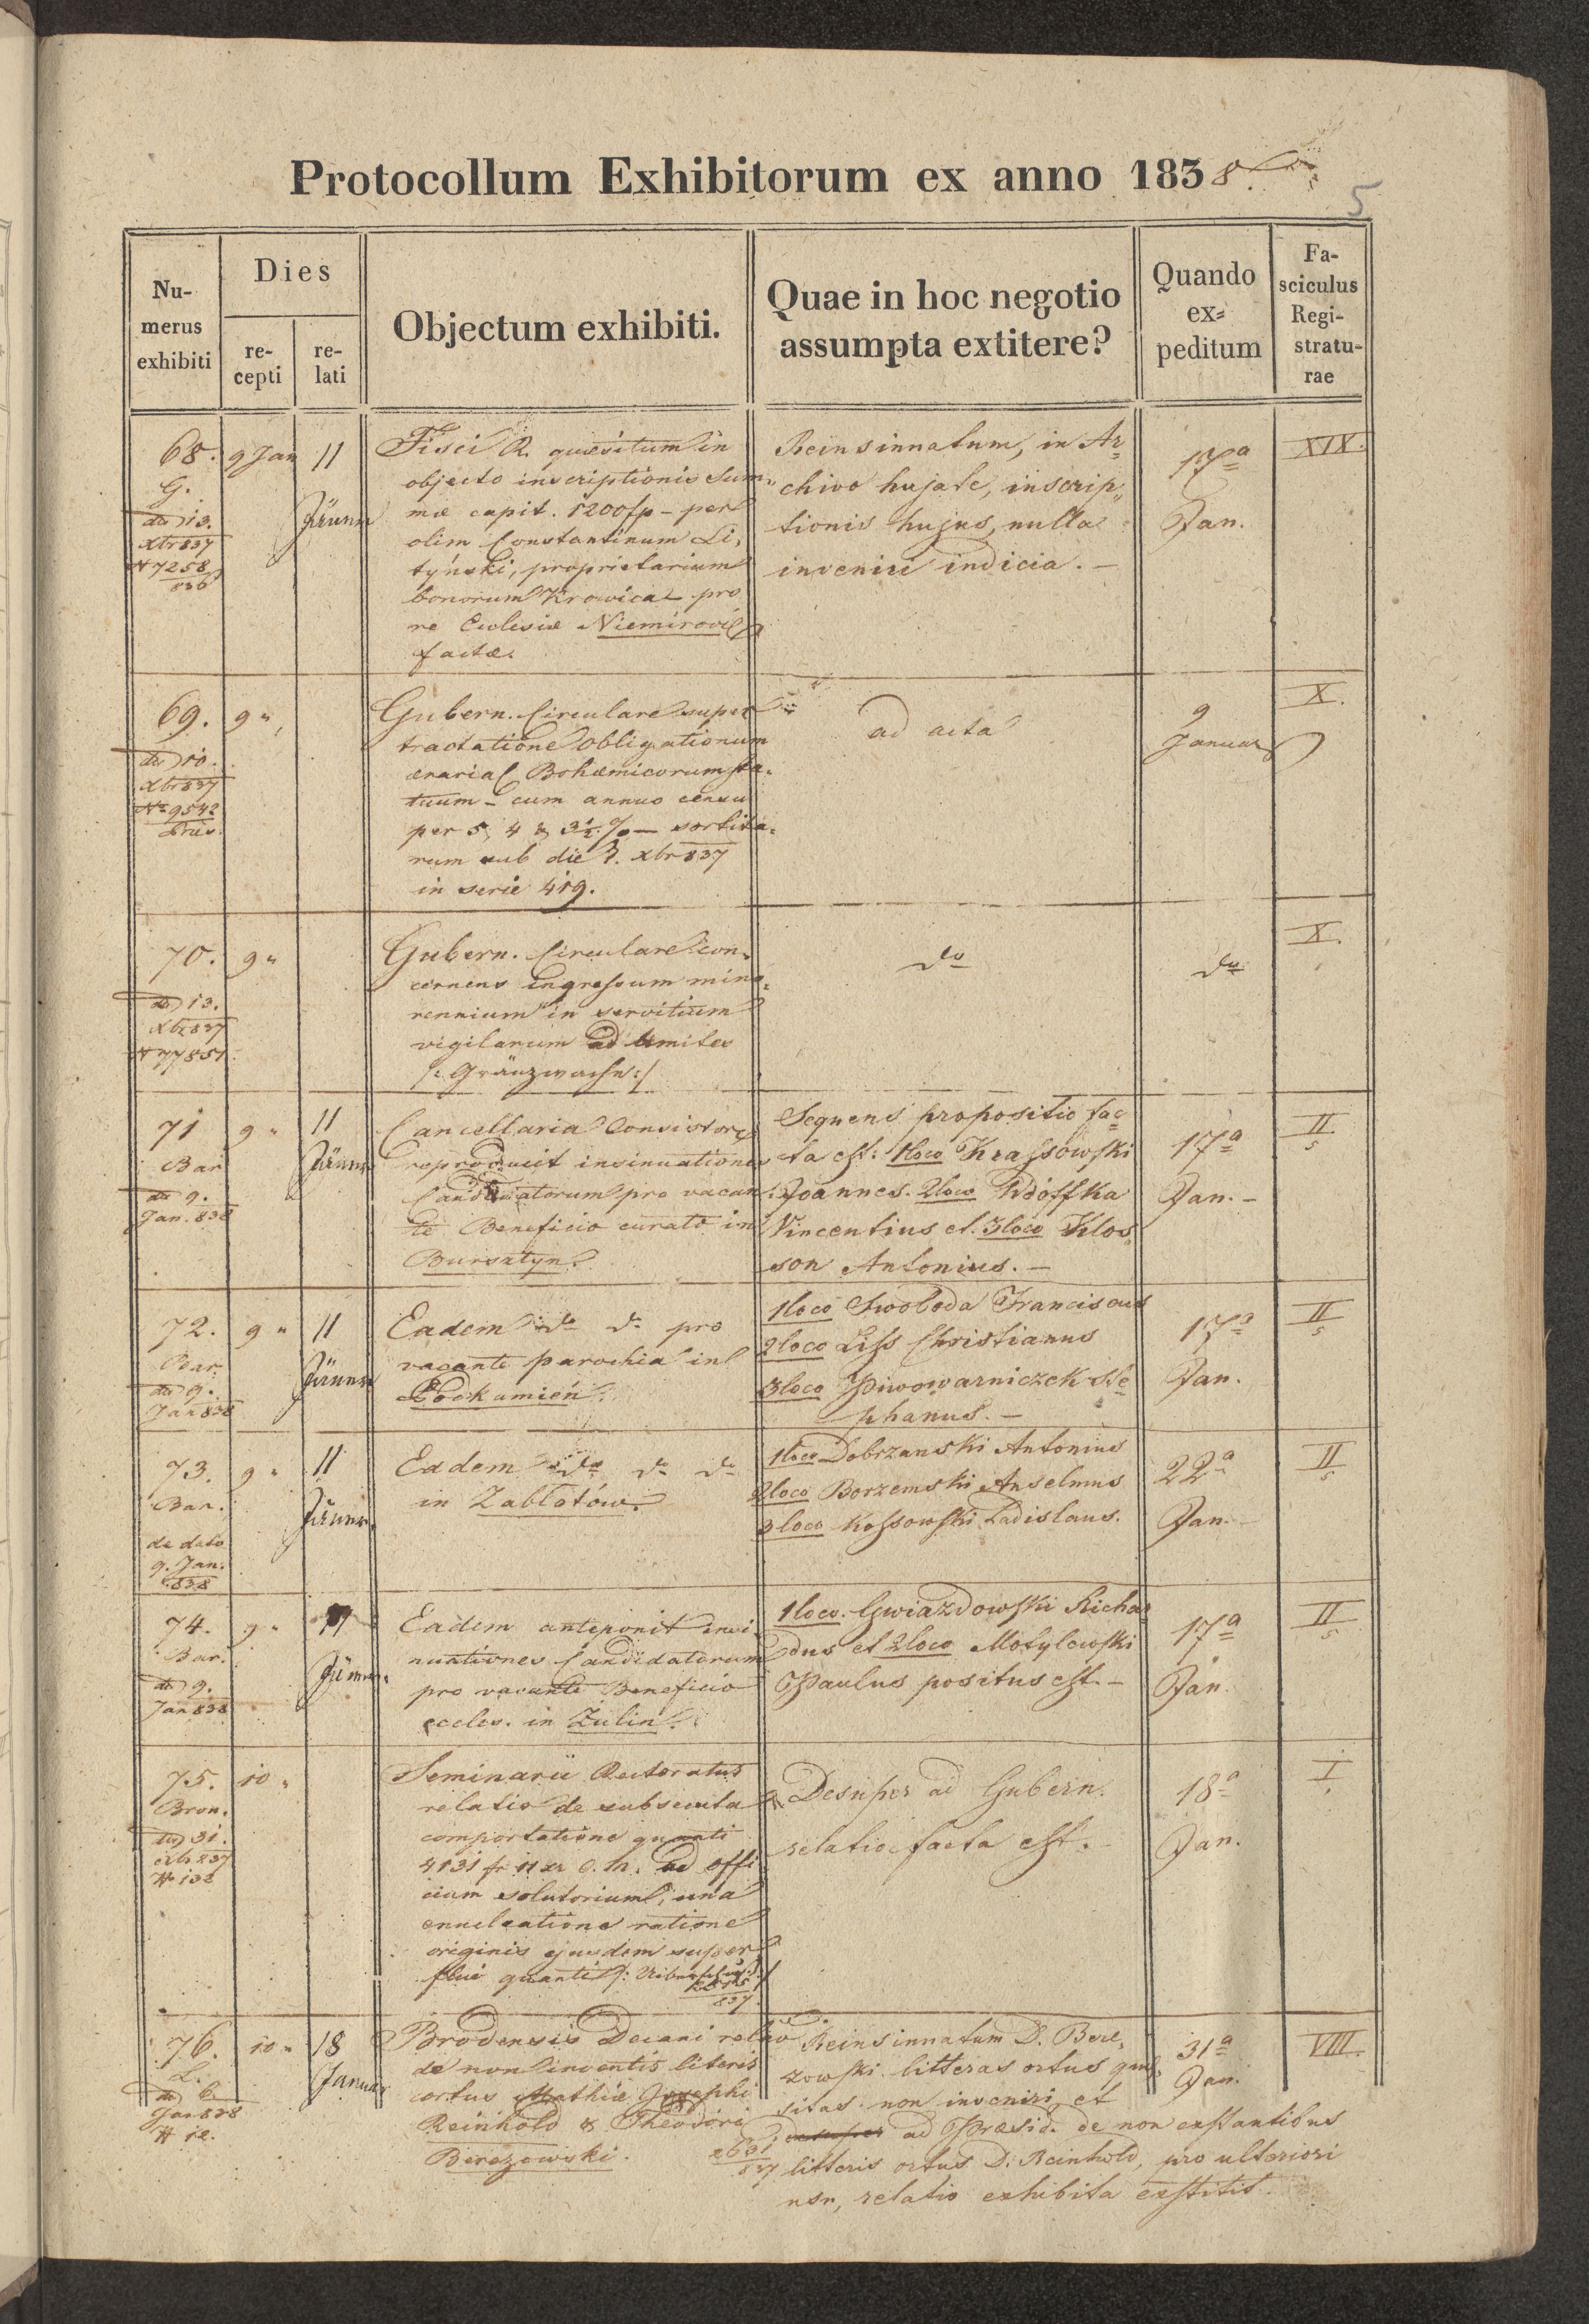 Protocollum Exhibitorum ex anno 1838.
5
Nu-
merus
exhibiti
Dies
re-
cepti
re-
lati
Objectum exhibiti.
Quae in hoc negotio
assumpta extitere?
Quando
ex=
peditum
Fa-
sciculus
Regi-
stratu-
rae
68.
G.
dto 13.
Xbr 837
N 7258
836
9 Jan
11
Jänner
Fisci R. quaesitum in
objecto inscriptionis Sum„
mae capit. 1200 fp – per
olim Constantinum Li,
tyński, proprietarium
bonorum Krowica pro
re Ecclesiae Niemirovi
factae.
Reinsinnatum, in Ar=
chivo hujate, inscrip„
tionis hujus, nulla
invenire indicia. –
17a
Jan.
XIX.
69.
dto 10.
Xbr 837
N 9542
9 „
Gubern. Circulare super
tractatione obligationum
aerarial Bohaemicorum sta=
tuum – cum annuo censu
per 5, 4 & 3½ % – sortita=
rum sub die 7. xbr 837
in serie 419.
ad acta
9
Januar
X.
70.
dto 13.
Xbr 837
N 77851
9 „
Gubern. Circulare con=
cernens ingressum mino=
rennium in servitium
vigilarum ad limites
/: Gränzwache :/
do
do
X.
71
Bar
dto 9.
Jan. 838
9 „
11
Jänner
Cancellaria Consistor
reproducit insinuationes
Candidatorum pro vacan
te Beneficio curato in
Bursztyn.
Sequens propositio fac=
ta est: 1loco Krassowski
Joannes. 2loco Wdóffka
Vincentius et. 3loco Klos„
son Antonius. –
17a
Jan. –
II
5
72.
Bar.
dto 9.
Jan 838
9 „
11
Jänner
Eadem do do pro
vacante parochia in
Podkamień.
1loco Swoboda Franciscus
2loco Liss Christianus
3loco Piwowarniczek Ste=
phanus. –
17a
Jan.
II
5
73.
Bar.
de dato
9. Jan.
838
9 „
11
Jänner
Eadem do do do
in Zabłotów.
1loco Dobrzanski Antonius
2loco Borzemski Anselmus
3loco Kossowski Ladislaus.
22a
Jan. –
II
5
74.
Bar.
dto 9.
Jan 838
9 „
11
Jänner
Eadem anteponit insi
nuationes Candidatorum
pro vacante Beneficio
eccles. in Zulin.
1loco. Gwiazdowski Richar
dus et 2loco Motylewski
Paulus positus est. –
17a
Jan
II
5
75.
Bron.
dto 31.
Xbr 837
N 132
10 „
Seminarii Rectoratus
relatio de subsecuta
comportatione quanti
4131 fr 11 xr C. M. ad offi
cium solutorium, una
enucleatione ratione
originis ejusdem super
flui quanti
837
Desuper ad Gubern.
relatio facta est.
18a
Jan.
I
76.
L.
dto 6.
Jan 838
N 12.
10 „
18
Januar
Brodensis Decani relatio
de non inventis literis
ortus Mathiae Josephi
Reinhold & Theodori
Berezowski.
2631
837
Reinsinnatum D. Bere,
zowski litteras ortus quae
sitas non inveniri, et
desuper ad Praesid. de non exstantibus
litteris ortus D. Reinhold, pro ulteriori
usu, relatio exhibita exstitit.
31a
Jan.
VIII.